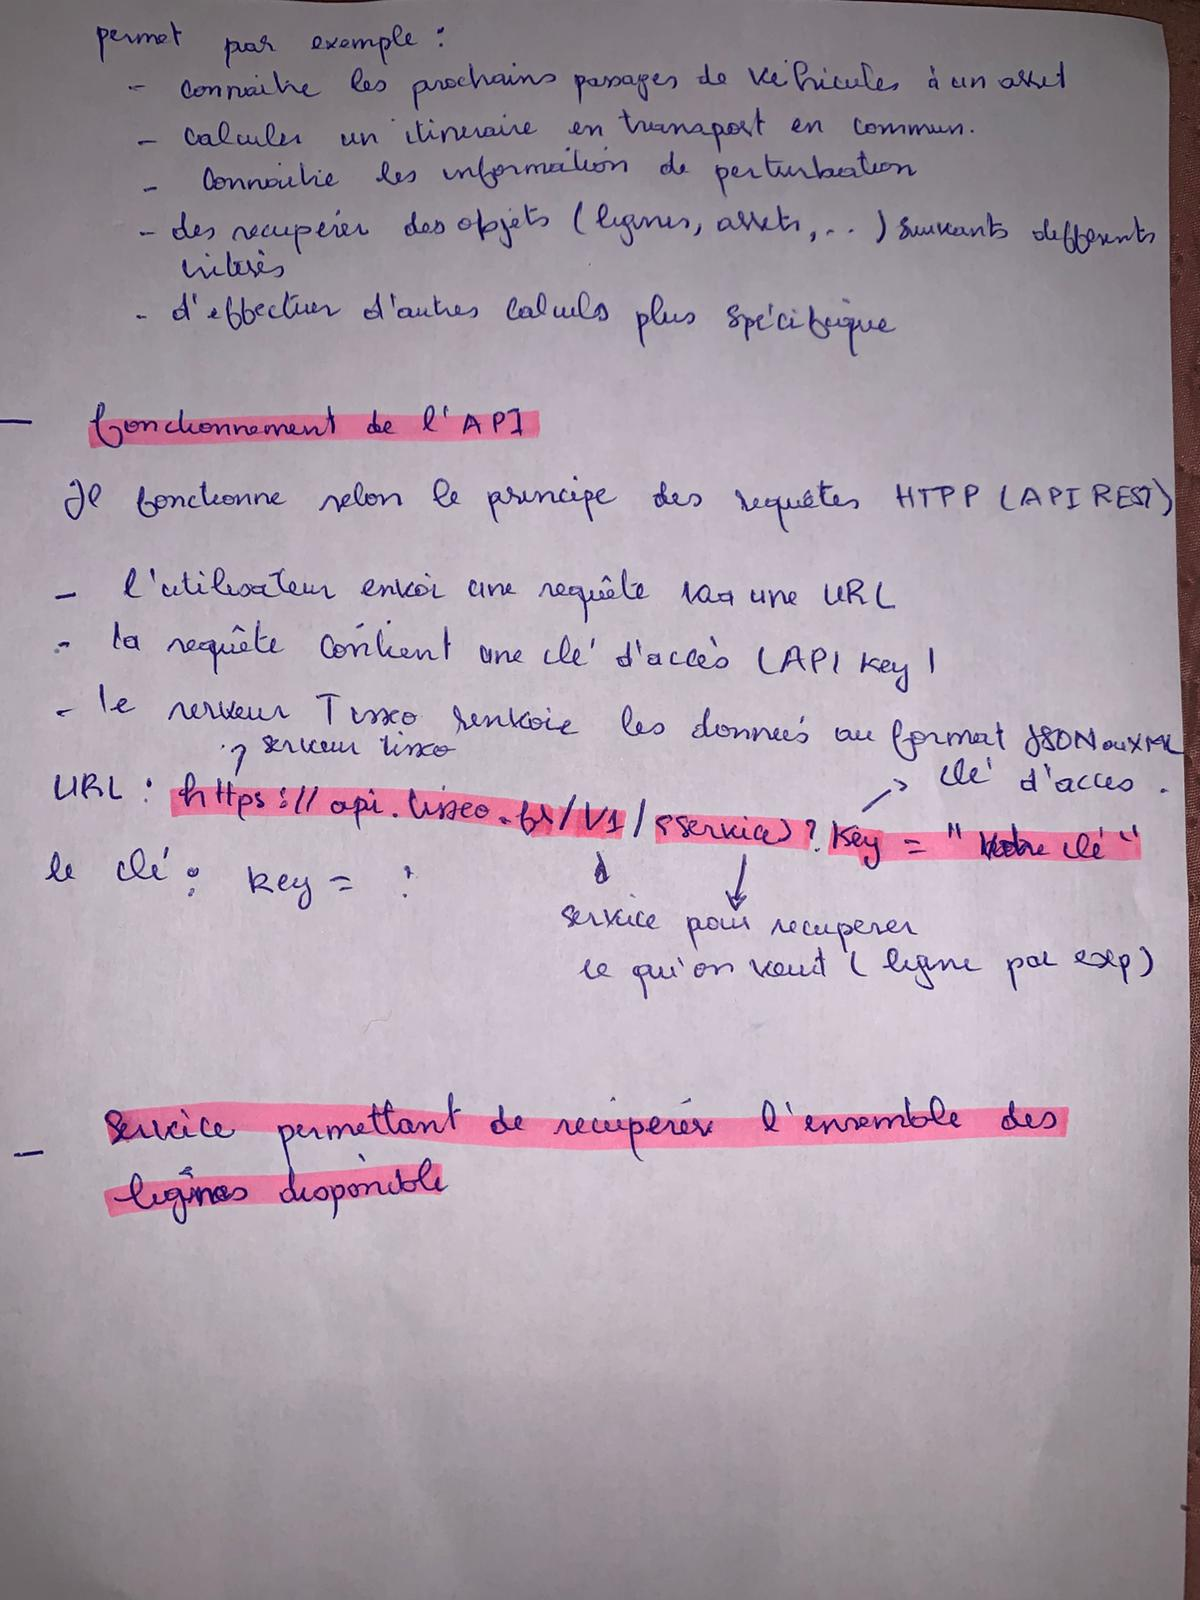 permet par exemple :
- connaitre les prochains passages de véhicules à un arret
- calculer un itineraire en transport en commun.
- connaitre les information de perturbation
- des recupérer des objets (lignes, arrets, ...) suivants differents
critères
- d'effectuer d'autres calculs plus spécifique
- fonctionnement de l'API
Il fonctionne selon le principe des requêtes HTPP (API REST)
- l'utilisateur envoi une requête via une URL
- la requête contient une clé d'accès (API key)
- le serveur Tisseo renvoie les données au format JSON ou XML
serveur tisseo
clé d'acces.
URL : https://api.tisseo.fr/V1/<service>?key = "votre clé"
le clé : key = ?
service pour recuperer
ce qu'on veut (ligne par exp)
- Service permettant de recupérér l'ensemble des
lignes disponible